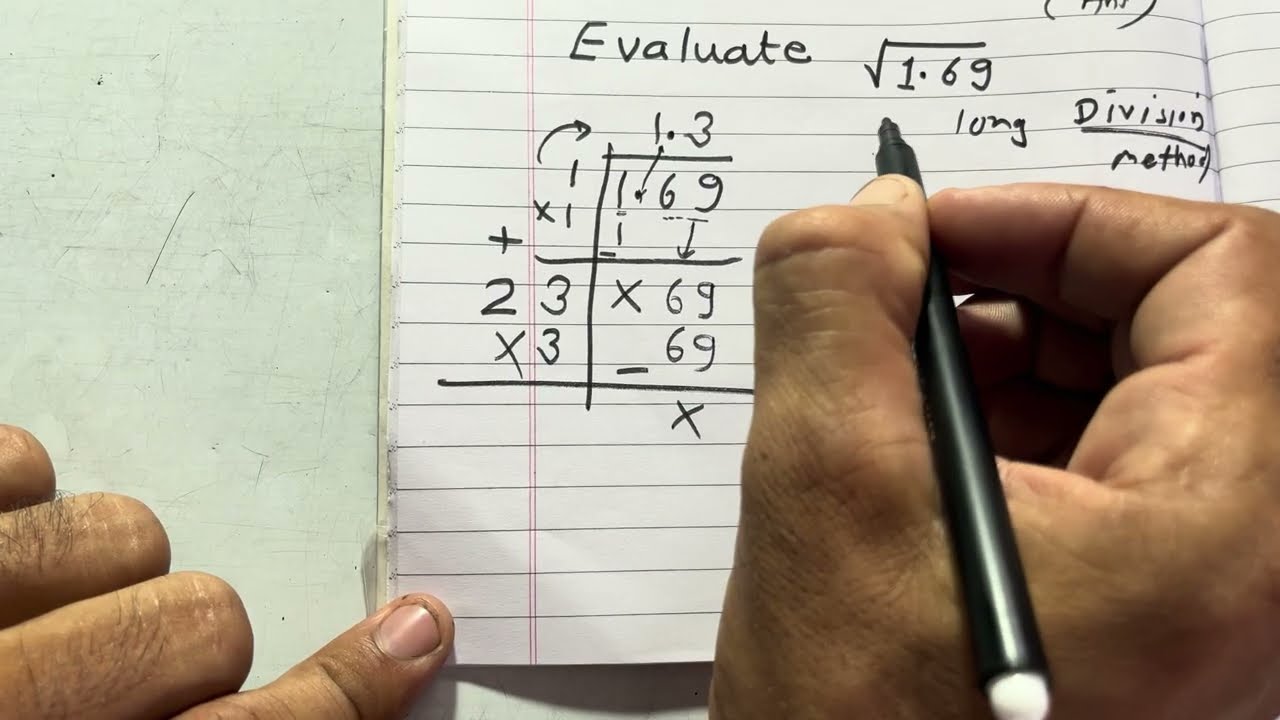 (Ans)
Evaluate √1.69
long Division
method
1.3
1 1.69
×1 1
+ -
2 3 × 69
×3 - 69
×